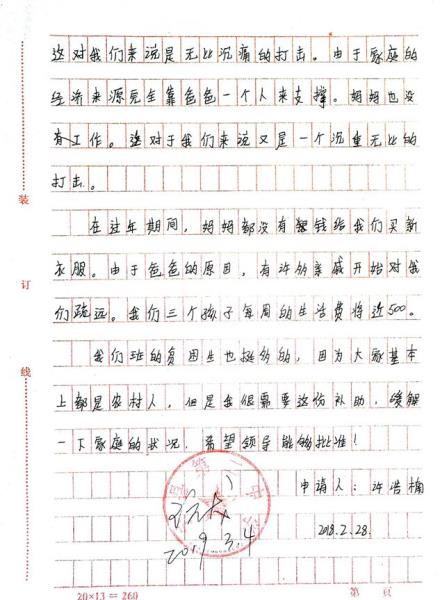 这对我们来说是无比沉痛的打击。由于家庭的
经济来源完全靠爸爸一个人来支撑。妈妈也没
有工作。这对于我们来说又是一个沉重无比的
打击。
在过年期间，妈妈都没有钱给我们买新
衣服。由于爸爸的原因，有许多亲戚开始对我
们疏远。我们三个孩子每周的生活费将近500。
我们班的贫困生也挺多的，因为大家基本
上都是农村人，但是我很需要这份补助，缓解
一下家庭的状况，希望领导能够批准！
申请人：许浩楠
2018.2.28.
2019.3.4
装
订
线
20×13=260
第 页